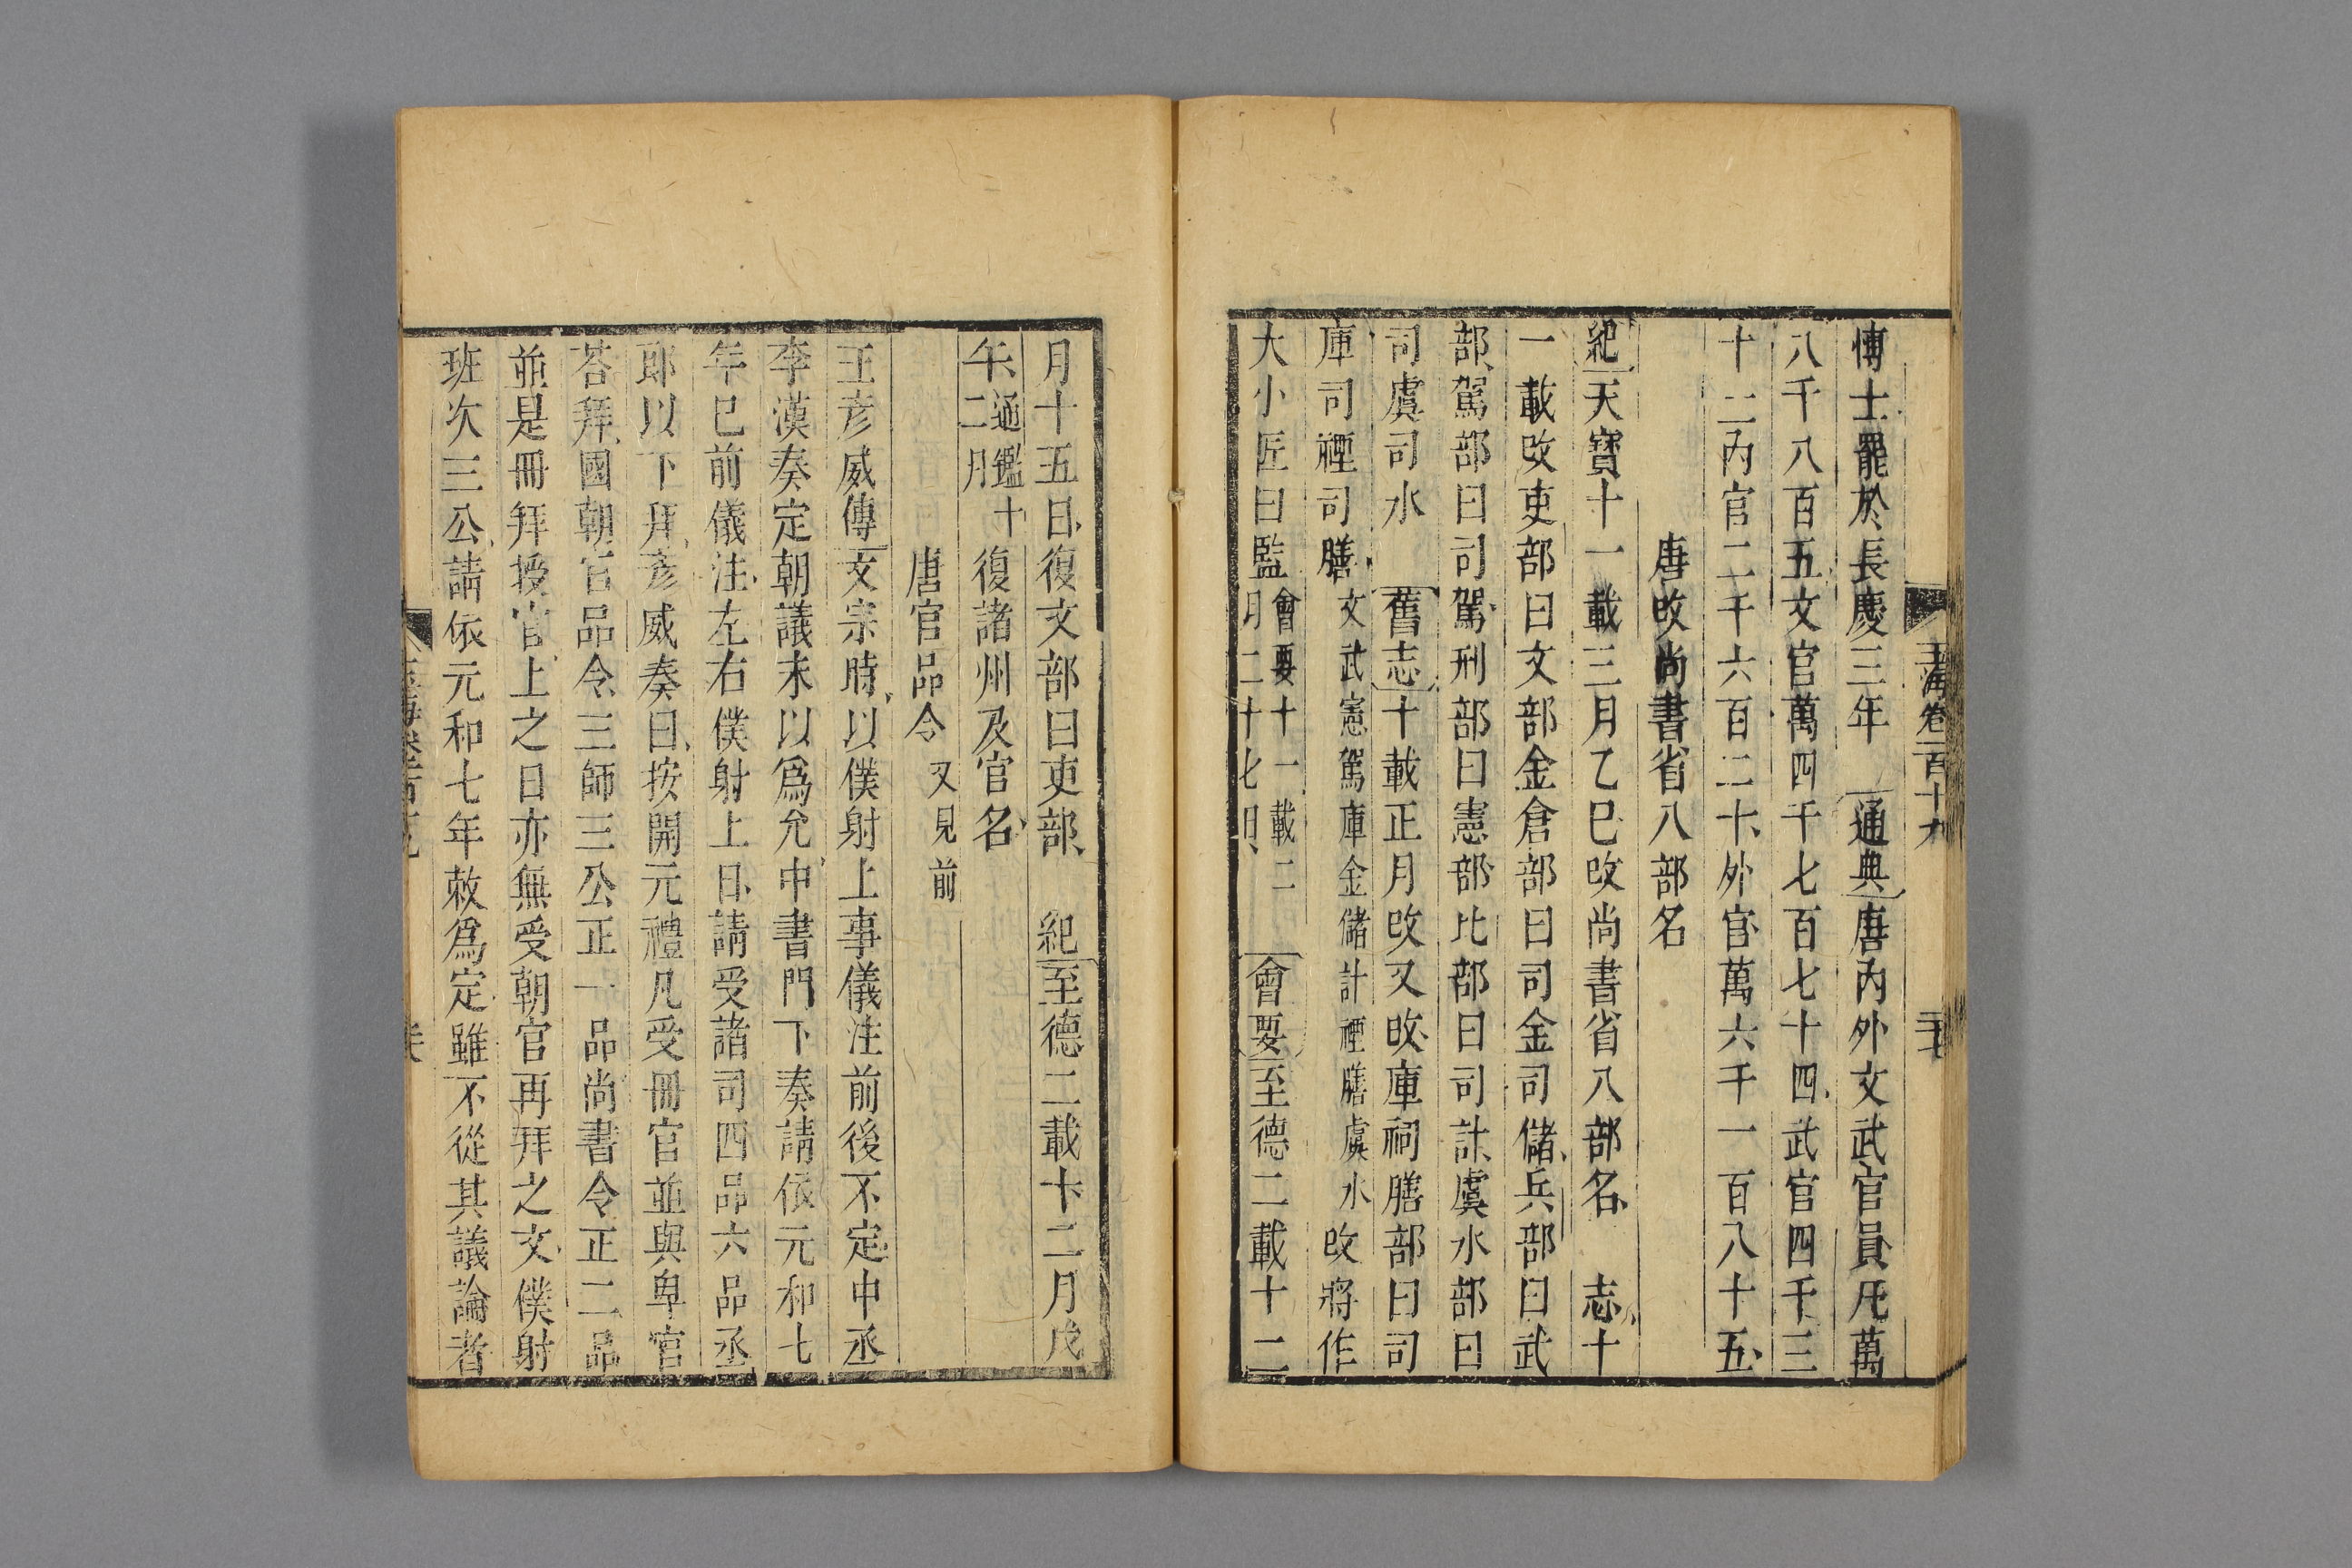 玉海卷一百十九
二十
博士罷於長慶三年　通典唐內外文武官員凡萬
八千八百五文官萬四千七百七十四武官四千三
十二內官二千六百二十外官萬六千一百八十五
唐改尚書省八部名
紀天寶十一載三月乙巳改尚書省八部名　志十
一載改吏部曰文部金倉部曰司金司儲兵部曰武
部駕部曰司駕刑部曰憲部比部曰司計虞水部曰
司虞司水　舊志十載正月改又改庫祠膳部曰司
庫司禋司膳文武憲駕庫金儲計禋膳虞水改將作
大小匠曰監會要十一載二月二十七日　會要至德二載十二
月十五日復文部曰吏部　紀至德二載十二月戊
午通鑑十二月復諸州及官名
唐官品令又見前
王彥威傳文宗時以僕射上事儀注前後不定中丞
李漢奏定朝議未以爲允中書門下奏請依元和七
年已前儀注左右僕射上日請受諸司四品六品丞
郎以下拜彥威奏曰按開元禮凡受冊官並與卑官
荅拜國朝官品令三師三公正一品尚書令正二品
並是冊拜授官上之日亦無受朝官再拜之文僕射
班次三公請依元和七年敕爲定雖不從其議論者